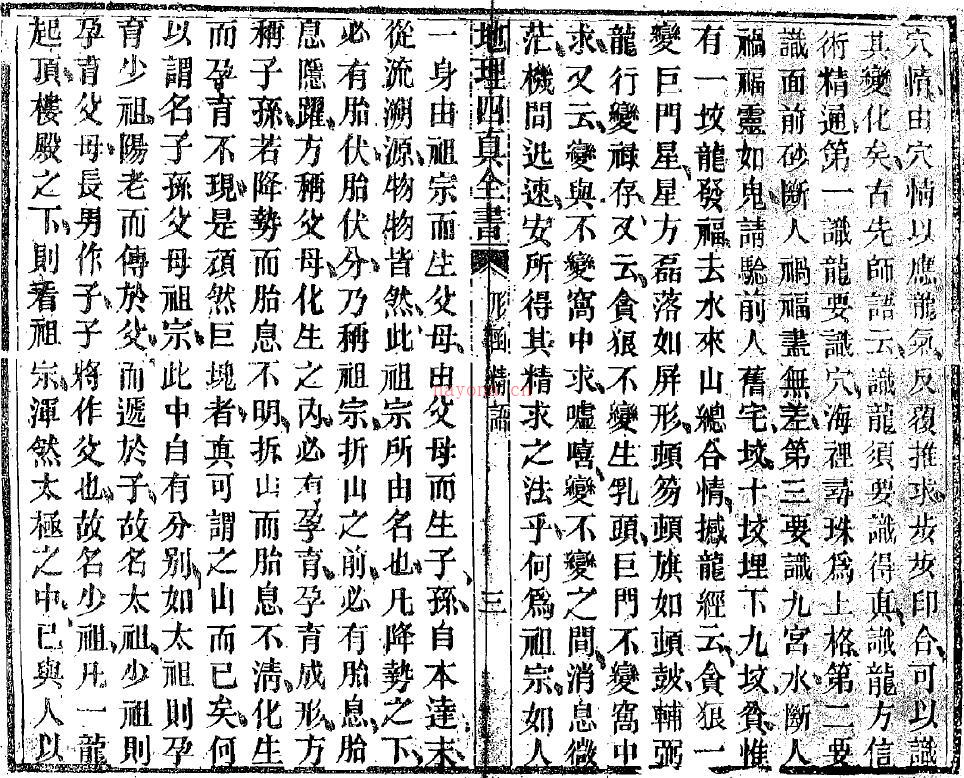 穴情由穴情以應龍氣反覆推求步步印合可以識
其變化矣古先師語云識龍須要識得真識龍方信
術精通第一識龍要識穴海裡尋珠爲上格第二要
識面前砂斷人禍福畫無差第三要識九宮水斷人
禍福靈如鬼請驗前人舊宅坟十坟埋下九坟貧惟
有一坟龍發福去水來山總合情撼龍經云貪狼一
變巨門星星方磊落如屏形頓笏頓旗如頓鼓輔弼
龍行變祿存又云貪狼不變生乳頭巨門不變窩中
求又云變與不變窩中求噓嘻變不變之間消息微
茫機問迅速安所得其精求之法乎何爲祖宗如人
地理四真全書 形 精語 三
一身由祖宗而生父母由父母而生子孫自本達末
從流溯源物物皆然此祖宗所由名也凡降勢之下
必有胎伏胎伏分乃稱祖宗折山之前必有胎息胎
息隱躍方稱父母化生之內必有孕育孕育成形方
稱子孫若降勢而胎息不明折山而胎息不清化生
而孕育不現是頑然巨塊者真可謂之山而已矣何
以謂名子孫父母祖宗此中自有分别如太祖則孕
育少祖陽老而傳於父而遞於子故名太祖少祖則
孕育父母長男作子子將作父也故名少祖凡一龍
起頂樓殿之下則看祖宗渾然太極之中已與人以
nayona.cn